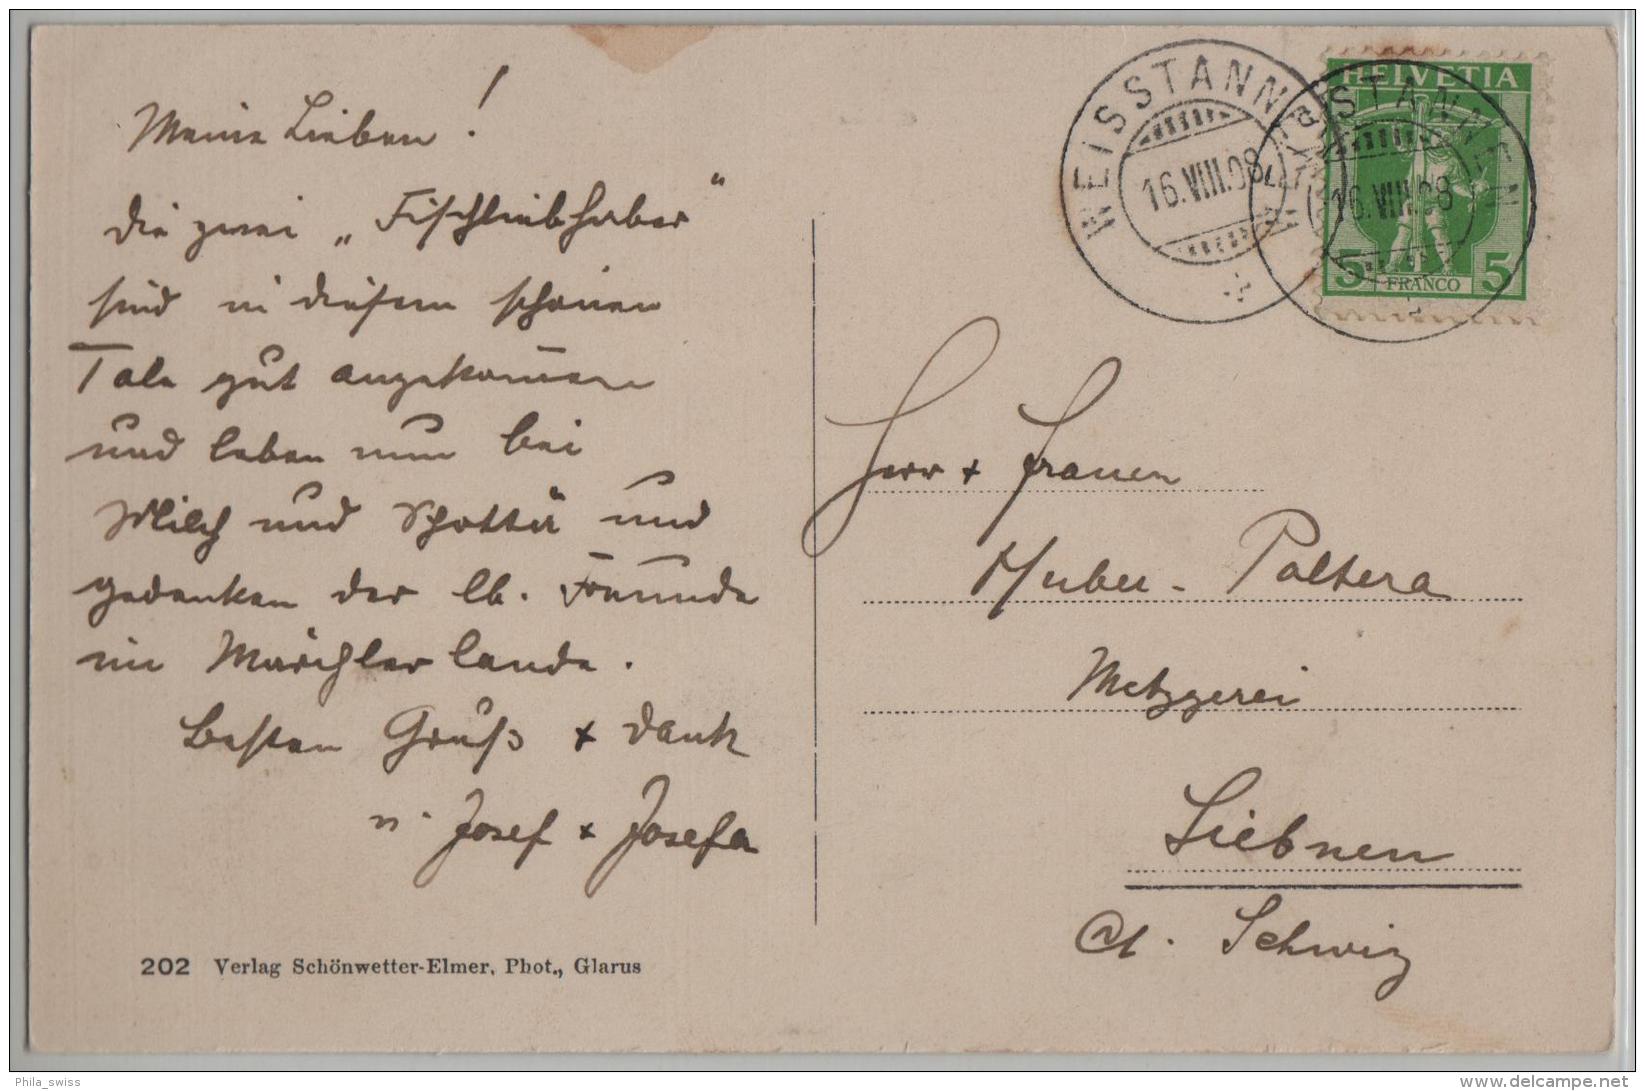 Meine Lieben!
die zwei „Fischliebhaber"
sind in diesem schönen
Tale gut angekom̄en
und leben nun bei
Milch und Schotte und
gedenken der lb. Freunde
im Märchlerlande.
Besten Gruß + Dank
v. Josef + Josefa
202 Verlag Schönwetter-Elmer, Phot., Glarus
WEISSTANNEN
16.VIII.08
WEISSTANNEN
16.VIII.08
HELVETIA
5 FRANCO 5
Herr + Frauen
Huber - Paltera
Metzgerei
Siebnen
Ct. Schwiz
Phila_swiss
delcampe.net